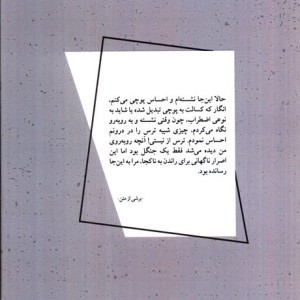 حالا این‌جا نشسته‌ام و احساس پوچی می‌کنم،
انگار که کسالت به پوچی تبدیل شده یا شاید به
نوعی اضطراب، چون وقتی نشسته و به روبه‌رو
نگاه می‌کردم، چیزی شبیه ترس را در درونم
احساس نمودم. ترس از نیستی! آنچه روبه‌روی
من دیده می‌شد فقط یک جنگل بود اما این
اصرار ناگهانی برای راندن به ناکجا، مرا به این‌جا
رسانده بود.
برشی از متن